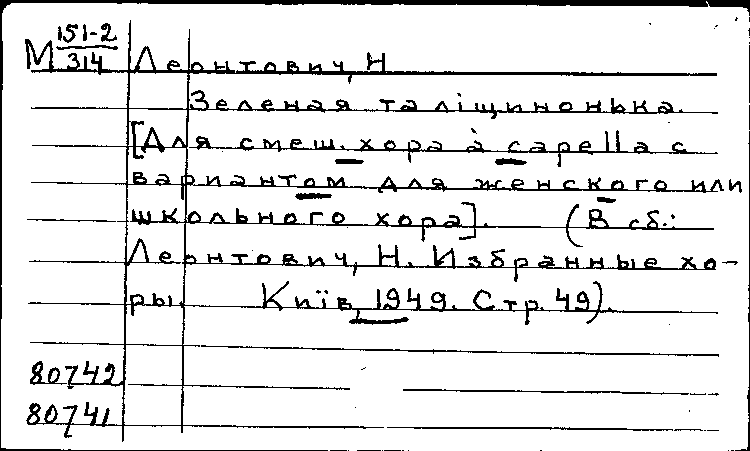 М 151-2
314
Леонтович, Н
Зеленая та ліщинонька.
[Для смеш. хора à capella с
вариантом для женского или
школьного хора]. (В сб.:
Леонтович, Н. Избранные хо-
ры. Київ, 1949. Стр. 49).
80742
80741